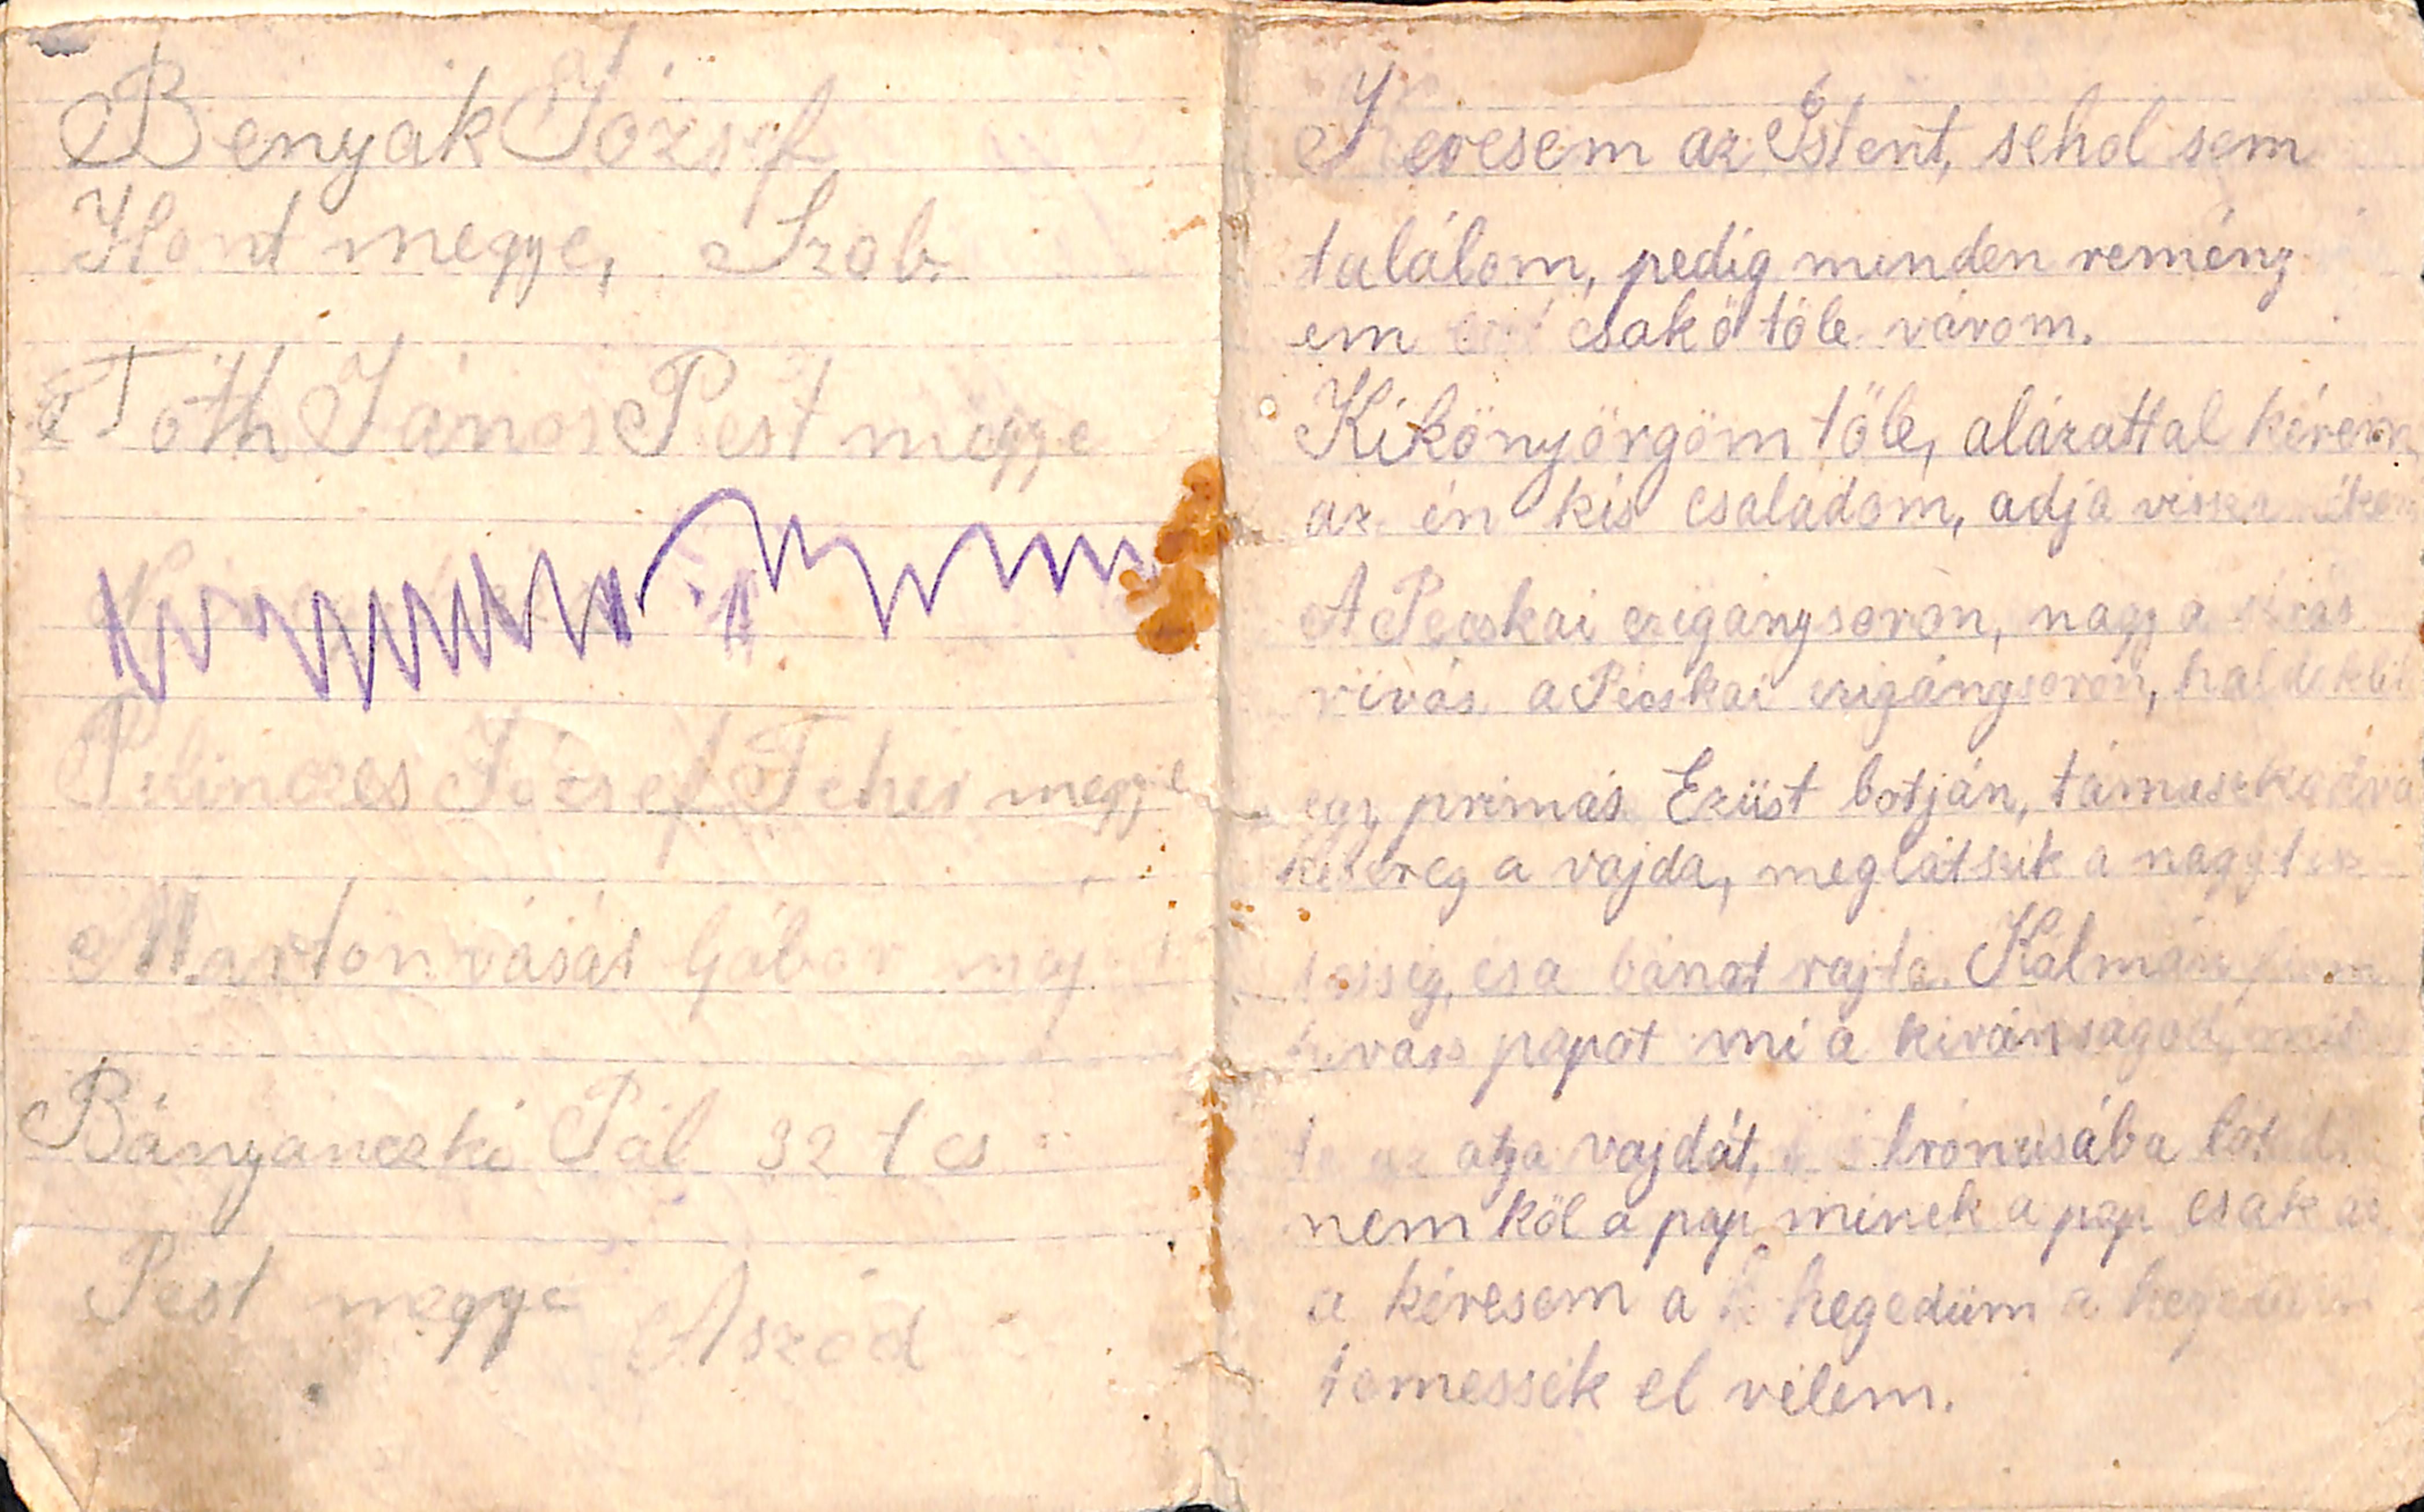 Benyák József
Hont megye, Szob.
Tóth János Pest megye
József Feher megye
Martonvásár Gábor maj
Bányanczki Pál 32 t cs
Pest megye Aszód
Keresem az Istent, sehol sem
találom, pedig minden remény
em csak ő töle várom.
Kikönyörgöm töle, alázattal kérem
az én kis családom, adja vissza
A Pécskai czigánysoron, nagy a sírás
rívás a Pécskai czigánysoron, haldoklik
egy prímás. Ezüst botján, támaszkodva
kesereg a vajda, meglátszik a nagy
és a bánat rajta. Kálmán
papot mi a kivánságod,
atya vajdát, trónusába
nem köl a pap minek a pap csak az
a kérésem a hegedüm a hegedüm
temessék el vélem.